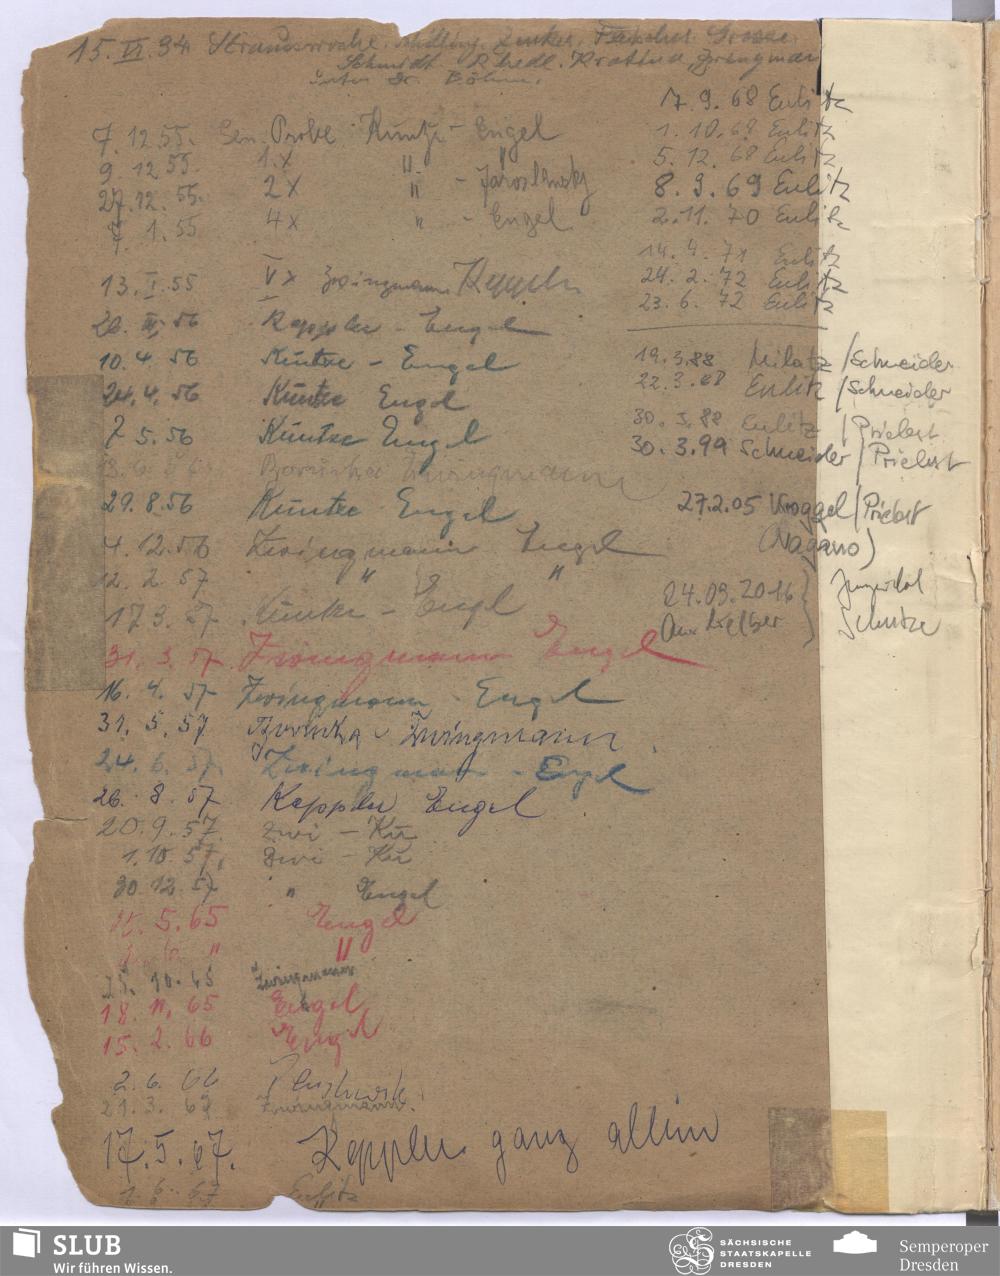 15. VI. 34 Zenker,
Schmidt
unter Dr. Böhm.
7. 12. 55. Gen. Probe Kuntze - Engel
9. 12. 55. 1.x " "
27. 12. 55. 2x " - Jaroslawsky
8. 1. 55 4x " - Engel
13. I. 55 V x Zwingmann Keppler
20. III. 56 Keppler - Engel
10. 4. 56 Kuntze - Engel
24. 4. 56 Kuntze Engel
7 5. 56 Kuntze Engel
Zwingmann
29. 8. 56 Kuntze Engel
4. 12. 56 Zwingmann Engel
12. 2. 57 " "
17 3. 57 Kuntze - Engel
31. 3. 57. Zwingmann Engel
16. 4. 57 Zwingmann - Engel
31. 5. 57 Zwingmann
24. 6. 57 Zwingmann - Engel
26. 8. 57 Keppler Engel
20. 9. 57 Zwi - Kü
1. 10. 57. Zwi - Kü
30 12. 57 " Engel
5. 65 Engel
" "
10. 65 Zwingmann
18. 11. 65 Engel
15. 2. 66 Engel
2. 6. 66
21. 3. 67 Zwingmann.
17. 5. 67. Keppler ganz allein
1. 6. 67 Eulitz
17. 9. 68 Eulitz
1. 10. 68 Eulitz
5. 12. 68 Eulitz
8. 9. 69 Eulitz
2. 11. 70 Eulitz
14. 4. 71 Eulitz
24. 2. 72 Eulitz
23. 6. 72 Eulitz
19. 3. 88 Milatz / Schneider
22. 3. 88 Eulitz / Schneider
30. 5. 88 Eulitz / Priebst
30. 3. 99 Schneider / Priebst
27.2.05 Kroggel / Priebst
(Nagano)
24.09.2016
SLUB
Wir führen Wissen.
SÄCHSISCHE
STAATSKAPELLE
DRESDEN
Semperoper
Dresden